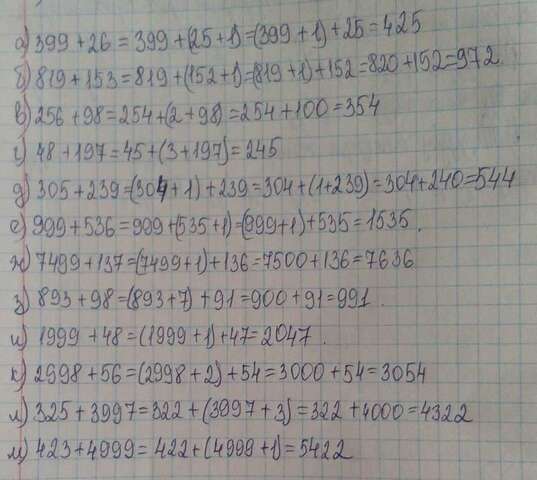 а) 399 + 26 = 399 + (25 + 1) = (399 + 1) + 25 = 425
б) 819 + 153 = 819 + (152 + 1) = (819 + 1) + 152 = 820 + 152 = 972
в) 256 + 98 = 254 + (2 + 98) = 254 + 100 = 354
г) 48 + 197 = 45 + (3 + 197) = 245
д) 305 + 239 = (304 + 1) + 239 = 304 + (1 + 239) = 304 + 240 = 544
е) 999 + 536 = 999 + (535 + 1) = (999 + 1) + 535 = 1535.
ж) 7499 + 137 = (7499 + 1) + 136 = 7500 + 136 = 7636
з) 893 + 98 = (893 + 7) + 91 = 900 + 91 = 991.
и) 1999 + 48 = (1999 + 1) + 47 = 2047.
к) 2998 + 56 = (2998 + 2) + 54 = 3000 + 54 = 3054
л) 325 + 3997 = 322 + (3997 + 3) = 322 + 4000 = 4322
м) 423 + 4999 = 422 + (4999 + 1) = 5422